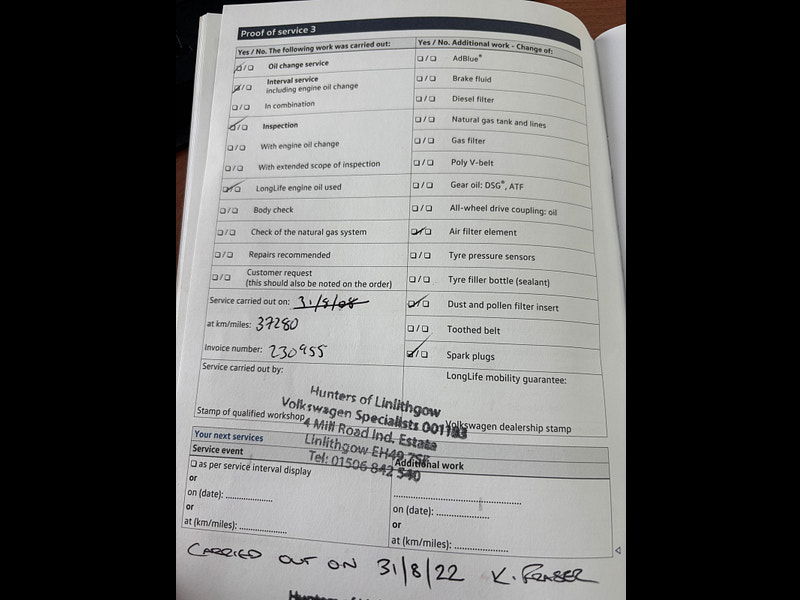 Proof of service 3
Yes / No. The following work was carried out:
❑ / ❑ Oil change service
❑ / ❑ Interval service
including engine oil change
❑ / ❑ In combination
❑ / ❑ Inspection
❑ / ❑ With engine oil change
❑ / ❑ With extended scope of inspection
❑ / ❑ LongLife engine oil used
❑ / ❑ Body check
❑ / ❑ Check of the natural gas system
❑ / ❑ Repairs recommended
❑ / ❑ Customer request
(this should also be noted on the order)
Service carried out on: 31/8/08
at km/miles: 37280
Invoice number: 230955
Service carried out by:
Stamp of qualified workshop
Yes / No. Additional work - Change of:
❑ / ❑ AdBlue®
❑ / ❑ Brake fluid
❑ / ❑ Diesel filter
❑ / ❑ Natural gas tank and lines
❑ / ❑ Gas filter
❑ / ❑ Poly V-belt
❑ / ❑ Gear oil: DSG®, ATF
❑ / ❑ All-wheel drive coupling: oil
❑ / ❑ Air filter element
❑ / ❑ Tyre pressure sensors
❑ / ❑ Tyre filler bottle (sealant)
❑ / ❑ Dust and pollen filter insert
❑ / ❑ Toothed belt
❑ / ❑ Spark plugs
LongLife mobility guarantee:
Volkswagen dealership stamp
Hunters of Linlithgow
Volkswagen Specialists
4 Mill Road Ind. Estate
Linlithgow EH49 7SF
Tel: 01506 842 540
Your next services
Service event
❑ as per service interval display
or
on (date): ....................
or
at (km/miles): ....................
Additional work
........................................................
on (date): .......................
or
at (km/miles): .......................
CARRIED OUT ON 31/8/22 K. FRASER